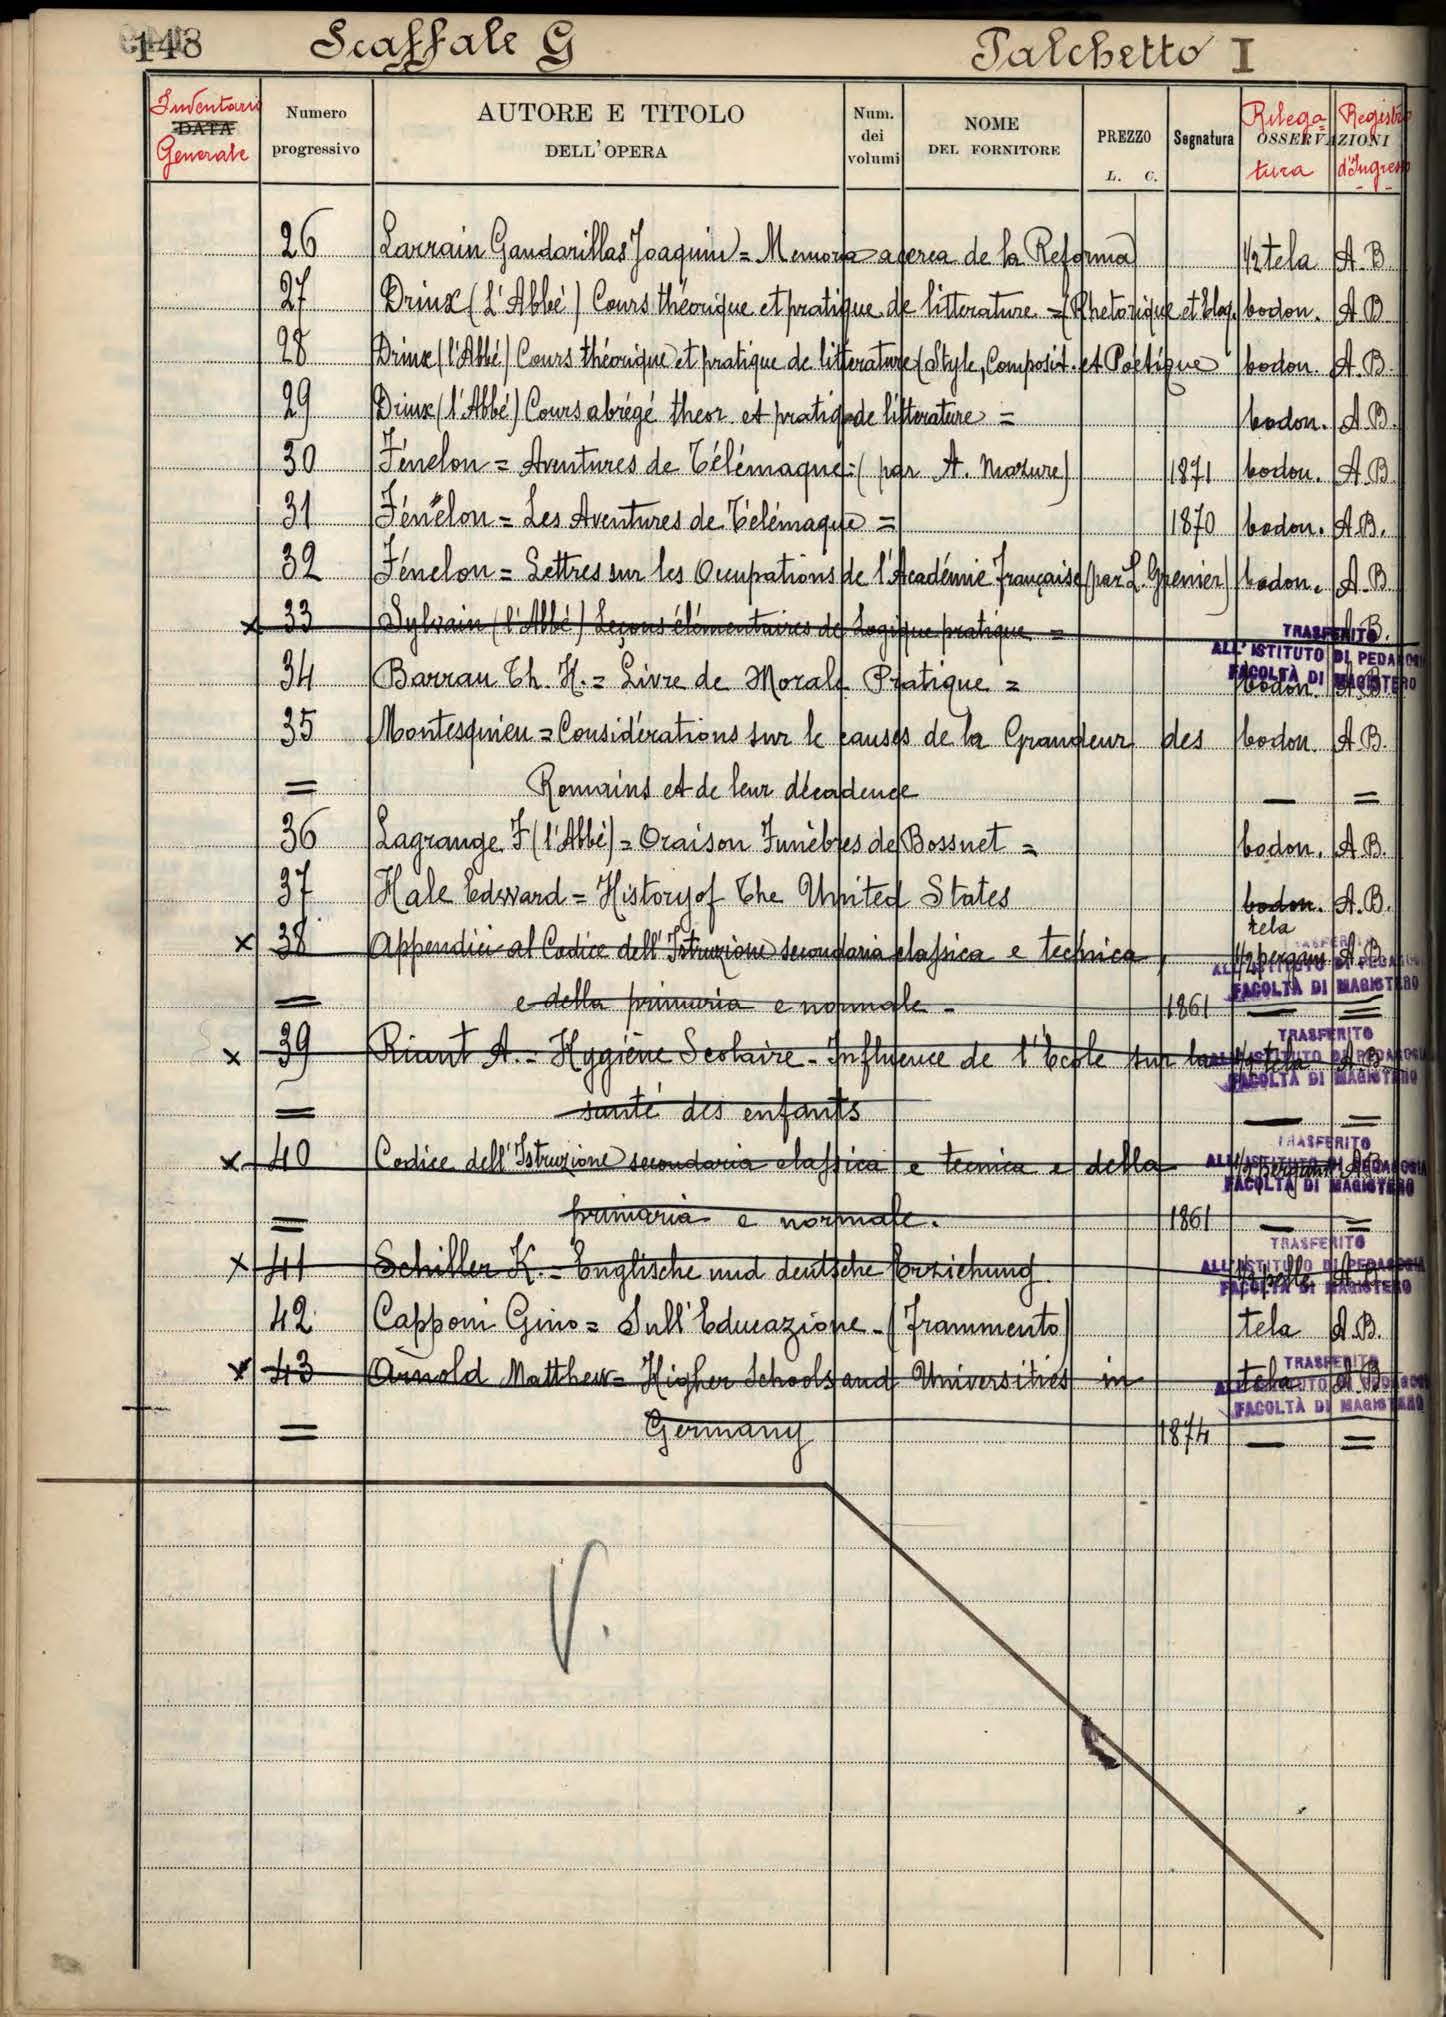 148 Scaffale G Palchetto I
Inventario DATA Generale Numero progressivo AUTORE E TITOLO DELL'OPERA Num. dei volumi NOME DEL FORNITORE PREZZO L. C. Segnatura Rilegatura OSSERVAZIONI Registro d'Ingresso
26 Larrain Gandarillas Joaquin = Memoria acerca de la Reforma 1/2 tela A.B
27 Drioux (L'Abbé) Cours théorique et pratique de litterature = (Rhetorique et Eloq. bodon. A.B
28 Drioux (l'Abbé) Cours théorique et pratique de litterature (Style, Composit. et Poétique bodon. A.B.
29 Drioux (l'Abbé) Cours abrégé theor. et pratiq de litterature = bodon. A.B.
30 Fénelon = Aventures de Télémaque = (par A. Mazure) 1871 bodon. A.B.
31 Fénélon = Les Aventures de Télémaque = 1870 bodon. A.B.
32 Fénelon = Lettres sur les Occupations de l'Académie Française (par L. Grenier) bodon. A.B
x 33 Sylvain (l'Abbé) Leçons élémentaires de Logique pratique = A.B.
TRASFERITO
ALL'ISTITUTO DI PEDAGOGIA
FACOLTÀ DI MAGISTERO
34 Barrau Th. H. = Livre de Morale Pratique = bodon. A.B
35 Montesquieu = Considérations sur le causes de la Grandeur des bodon. A.B.
= Romains et de leur décadence — =
36 Lagrange F (l'Abbé) = Oraison Funèbres de Bossuet = bodon. A.B.
37 Hale Edward = History of The United States bodon. A.B.
tela
x 38 Appendici al Codice dell'Istruzione secondaria classica e technica, 1/2 pergam A.B
TRASFERITO
ALL'ISTITUTO DI PEDAGOGIA
FACOLTÀ DI MAGISTERO
= e della primaria e normale - 1861 — =
x 39 Riant A. - Hygiène Scolaire - Influence de l'École sur la 1/2 tela A.B
TRASFERITO
ALL'ISTITUTO DI PEDAGOGIA
FACOLTÀ DI MAGISTERO
= santé des enfants — =
x 40 Codice dell'Istruzione secondaria classica e tecnica e della 1/2 pergam A.B
TRASFERITO
ALL'ISTITUTO DI PEDAGOGIA
FACOLTÀ DI MAGISTERO
= primaria e normale. 1861 — =
x 41 Schiller K. = Englische und deutsche Erziehung. 1/2 pelle A.B
TRASFERITO
ALL'ISTITUTO DI PEDAGOGIA
FACOLTÀ DI MAGISTERO
42 Capponi Gino = Sull'Educazione - (Frammento) tela A.B.
x 43 Arnold Matthew = Higher Schools and Universities in tela A.B
TRASFERITO
ALL'ISTITUTO DI PEDAGOGIA
FACOLTÀ DI MAGISTERO
= Germany 1874 — =
V.